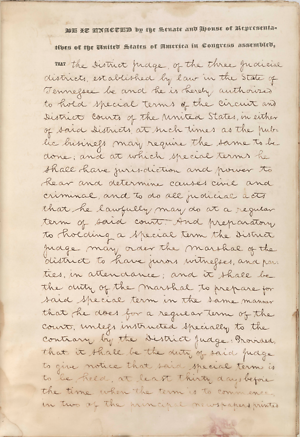 BE IT ENACTED by the Senate and House of Representa-
tives of the United States of America in Congress assembled,
THAT the District Judge of the three judicial
districts established by law in the State of
Tennessee be and he is hereby authorized
to hold special terms of the Circuit and
District Courts of the United States, in either
of said Districts at such times as the pub-
lic business may require the same to be
done; and at which special terms he
shall have jurisdiction and power to
hear and determine causes civil and
criminal, and to do all judicial acts
that he lawfully may do at a regular
term of said court. And preparatory
to holding a special term the District
judge may order the Marshal of the
district to have jurors witnesses, and par
ties, in attendance; and it shall be
the duty of the marshal to prepare for
said special term in the same manner
that he does for a regular term of the
court, unless instructed specially to the
contrary by the District judge: Provided
that it shall be the duty of said judge
to give notice that said special term is
to be held, at least thirty days before
the time when the term is to commence
in two of the newspapers printed